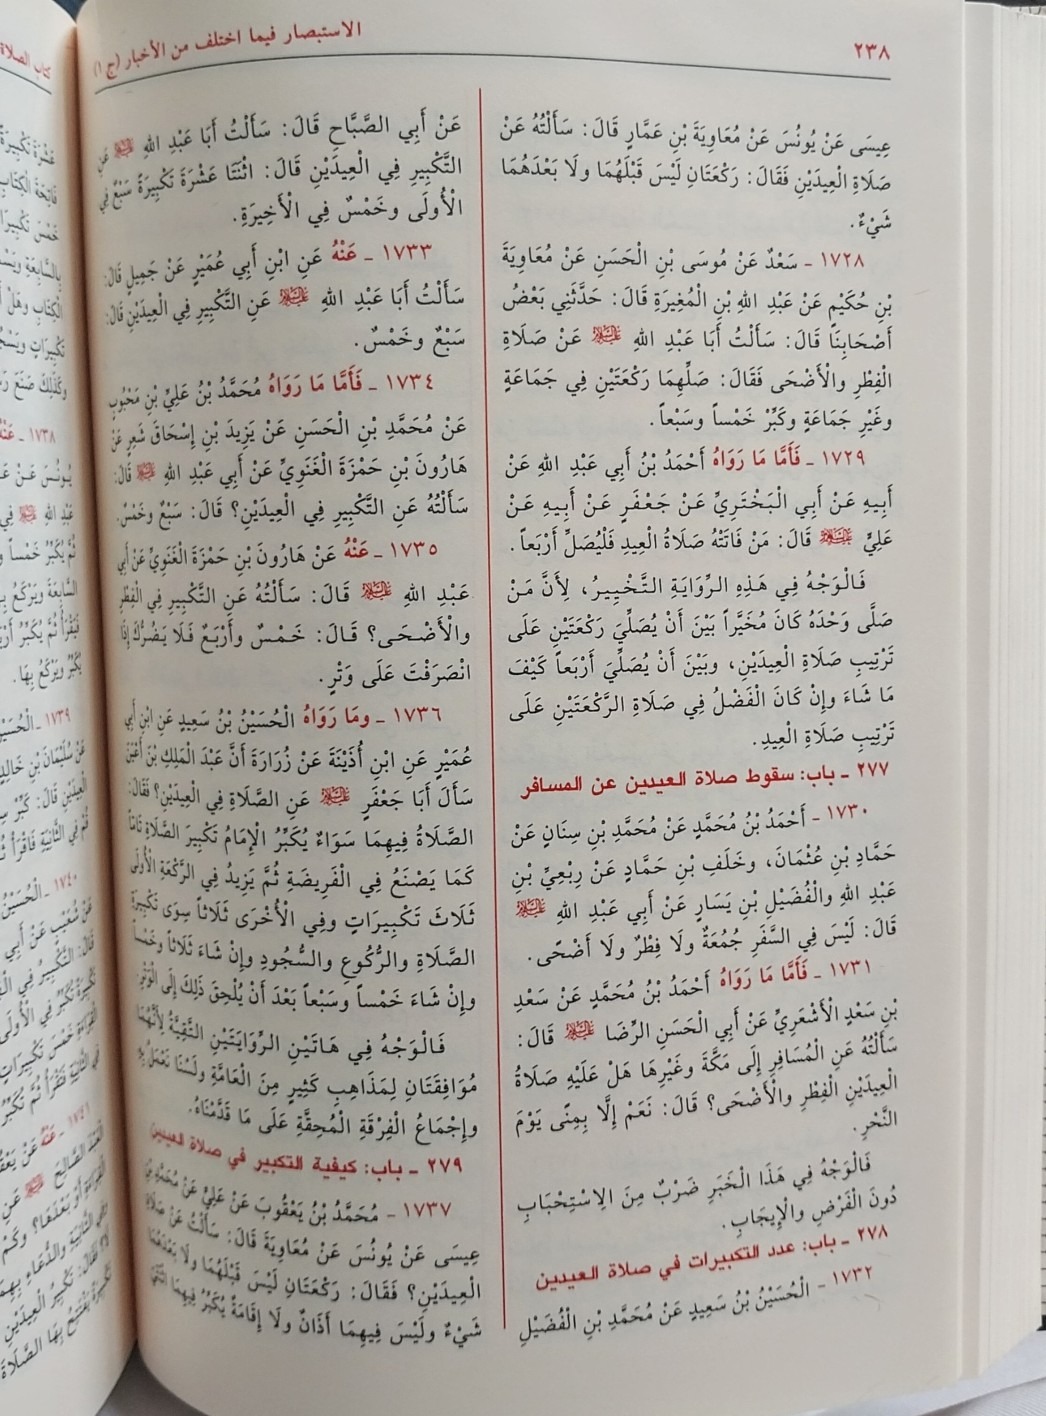 ٢٣٨
الاستبصار فيما اختلف من الأخبار (ج ١)
عِيسَى عَنْ يُونُسَ عَنْ مُعَاوِيَةَ بْنِ عَمَّارٍ قَالَ: سَأَلْتُهُ عَنْ
صَلَاةِ الْعِيدَيْنِ فَقَالَ: رَكْعَتَانِ لَيْسَ قَبْلَهُمَا ولَا بَعْدَهُمَا
شَيْءٌ.
١٧٢٨ ـ سَعْدٌ عَنْ مُوسَى بْنِ الْحَسَنِ عَنْ مُعَاوِيَةَ
بْنِ حُكَيْمٍ عَنْ عَبْدِ اللهِ بْنِ الْمُغِيرَةِ قَالَ: حَدَّثَنِي بَعْضُ
أَصْحَابِنَا قَالَ: سَأَلْتُ أَبَا عَبْدِ اللهِ عليه السلام عَنْ صَلَاةِ
الْفِطْرِ والْأَضْحَى فَقَالَ: صَلِّهِمَا رَكْعَتَيْنِ فِي جَمَاعَةٍ
وغَيْرِ جَمَاعَةٍ وكَبِّرْ خَمْساً وسَبْعاً.
١٧٢٩ ـ فَأَمَّا مَا رَوَاهُ أَحْمَدُ بْنُ أَبِي عَبْدِ اللهِ عَنْ
أَبِيهِ عَنْ أَبِي الْبَخْتَرِيِّ عَنْ جَعْفَرٍ عَنْ أَبِيهِ عَنْ
عَلِيٍّ عليه السلام قَالَ: مَنْ فَاتَتْهُ صَلَاةُ الْعِيدِ فَلْيُصَلِّ أَرْبَعاً.
فَالْوَجْهُ فِي هَذِهِ الرِّوَايَةِ التَّخْيِيرُ، لِأَنَّ مَنْ
صَلَّى وَحْدَهُ كَانَ مُخَيَّراً بَيْنَ أَنْ يُصَلِّيَ رَكْعَتَيْنِ عَلَى
تَرْتِيبِ صَلَاةِ الْعِيدَيْنِ، وبَيْنَ أَنْ يُصَلِّيَ أَرْبَعاً كَيْفَ
مَا شَاءَ وإِنْ كَانَ الْفَضْلُ فِي صَلَاةِ الرَّكْعَتَيْنِ عَلَى
تَرْتِيبِ صَلَاةِ الْعِيدِ.
٢٧٧ ـ باب: سقوط صلاة العيدين عن المسافر
١٧٣٠ ـ أَحْمَدُ بْنُ مُحَمَّدٍ عَنْ مُحَمَّدِ بْنِ سِنَانٍ عَنْ
حَمَّادِ بْنِ عُثْمَانَ، وخَلَفِ بْنِ حَمَّادٍ عَنْ رِبْعِيِّ بْنِ
عَبْدِ اللهِ والْفُضَيْلِ بْنِ يَسَارٍ عَنْ أَبِي عَبْدِ اللهِ عليه السلام
قَالَ: لَيْسَ فِي السَّفَرِ جُمُعَةٌ ولَا فِطْرٌ ولَا أَضْحًى.
١٧٣١ ـ فَأَمَّا مَا رَوَاهُ أَحْمَدُ بْنُ مُحَمَّدٍ عَنْ سَعْدِ
بْنِ سَعْدٍ الْأَشْعَرِيِّ عَنْ أَبِي الْحَسَنِ الرِّضَا عليه السلام قَالَ:
سَأَلْتُهُ عَنِ الْمُسَافِرِ إِلَى مَكَّةَ وغَيْرِهَا هَلْ عَلَيْهِ صَلَاةُ
الْعِيدَيْنِ الْفِطْرِ والْأَضْحَى؟ قَالَ: نَعَمْ إِلَّا بِمِنًى يَوْمَ
النَّحْرِ.
فَالْوَجْهُ فِي هَذَا الْخَبَرِ ضَرْبٌ مِنَ الِاسْتِحْبَابِ
دُونَ الْفَرْضِ والْإِيجَابِ.
٢٧٨ ـ باب: عدد التكبيرات في صلاة العيدين
١٧٣٢ ـ الْحُسَيْنُ بْنُ سَعِيدٍ عَنْ مُحَمَّدِ بْنِ الْفُضَيْلِ
عَنْ أَبِي الصَّبَّاحِ قَالَ: سَأَلْتُ أَبَا عَبْدِ اللهِ عليه السلام عَنِ
التَّكْبِيرِ فِي الْعِيدَيْنِ قَالَ: اثْنَتَا عَشْرَةَ تَكْبِيرَةً سَبْعٌ فِي
الْأُولَى وخَمْسٌ فِي الْأَخِيرَةِ.
١٧٣٣ ـ عَنْهُ عَنِ ابْنِ أَبِي عُمَيْرٍ عَنْ جَمِيلٍ قَالَ:
سَأَلْتُ أَبَا عَبْدِ اللهِ عليه السلام عَنِ التَّكْبِيرِ فِي الْعِيدَيْنِ قَالَ:
سَبْعٌ وخَمْسٌ.
١٧٣٤ ـ فَأَمَّا مَا رَوَاهُ مُحَمَّدُ بْنُ عَلِيِّ بْنِ مَحْبُوبٍ
عَنْ مُحَمَّدِ بْنِ الْحَسَنِ عَنْ يَزِيدَ بْنِ إِسْحَاقَ شَعِرٍ عَنْ
هَارُونَ بْنِ حَمْزَةَ الْغَنَوِيِّ عَنْ أَبِي عَبْدِ اللهِ عليه السلام قَالَ:
سَأَلْتُهُ عَنِ التَّكْبِيرِ فِي الْعِيدَيْنِ؟ قَالَ: سَبْعٌ وخَمْسٌ.
١٧٣٥ ـ عَنْهُ عَنْ هَارُونَ بْنِ حَمْزَةَ الْغَنَوِيِّ عَنْ أَبِي
عَبْدِ اللهِ عليه السلام قَالَ: سَأَلْتُهُ عَنِ التَّكْبِيرِ فِي الْفِطْرِ
والْأَضْحَى؟ قَالَ: خَمْسٌ وأَرْبَعٌ فَلَا يَضُرُّكَ إِذَا
انْصَرَفْتَ عَلَى وَتْرٍ.
١٧٣٦ ـ ومَا رَوَاهُ الْحُسَيْنُ بْنُ سَعِيدٍ عَنِ ابْنِ أَبِي
عُمَيْرٍ عَنِ ابْنِ أُذَيْنَةَ عَنْ زُرَارَةَ أَنَّ عَبْدَ الْمَلِكِ بْنَ أَعْيَنَ
سَأَلَ أَبَا جَعْفَرٍ عليه السلام عَنِ الصَّلَاةِ فِي الْعِيدَيْنِ؟ فَقَالَ:
الصَّلَاةُ فِيهِمَا سَوَاءٌ يُكَبِّرُ الْإِمَامُ تَكْبِيرَ الصَّلَاةِ تَامّاً
كَمَا يَصْنَعُ فِي الْفَرِيضَةِ ثُمَّ يَزِيدُ فِي الرَّكْعَةِ الْأُولَى
ثَلَاثَ تَكْبِيرَاتٍ وفِي الْأُخْرَى ثَلَاثاً سِوَى تَكْبِيرَةِ
الصَّلَاةِ والرُّكُوعِ والسُّجُودِ وإِنْ شَاءَ ثَلَاثاً وخَمْساً
وإِنْ شَاءَ خَمْساً وسَبْعاً بَعْدَ أَنْ يُلْحِقَ ذَلِكَ إِلَى الْوَتْرِ.
فَالْوَجْهُ فِي هَاتَيْنِ الرِّوَايَتَيْنِ التَّقِيَّةُ لِأَنَّهُمَا
مُوَافِقَتَانِ لِمَذَاهِبِ كَثِيرٍ مِنَ الْعَامَّةِ ولَسْنَا نَعْمَلُ بِهِ
وإِجْمَاعُ الْفِرْقَةِ الْمُحِقَّةِ عَلَى مَا قَدَّمْنَاهُ.
٢٧٩ ـ باب: كيفية التكبير في صلاة العيدين
١٧٣٧ ـ مُحَمَّدُ بْنُ يَعْقُوبَ عَنْ عَلِيٍّ عَنْ مُحَمَّدِ بْنِ
عِيسَى عَنْ يُونُسَ عَنْ مُعَاوِيَةَ قَالَ: سَأَلْتُ عَنْ صَلَاةِ
الْعِيدَيْنِ؟ فَقَالَ: رَكْعَتَانِ لَيْسَ قَبْلَهُمَا ولَا بَعْدَهُمَا
شَيْءٌ ولَيْسَ فِيهِمَا أَذَانٌ ولَا إِقَامَةٌ يُكَبِّرُ فِيهِمَا اثْنَتَيْ